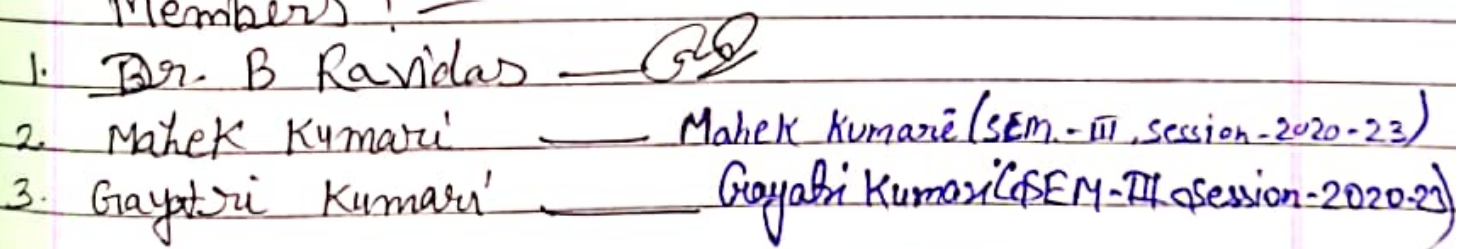 Members :-
1. Dr. B Ravidas —
2. Mahek Kumari — Mahek Kumari (SEM.-III, session-2020-23)
3. Gayatri Kumari — Gayatri Kumari (SEM-III session-2020-23)